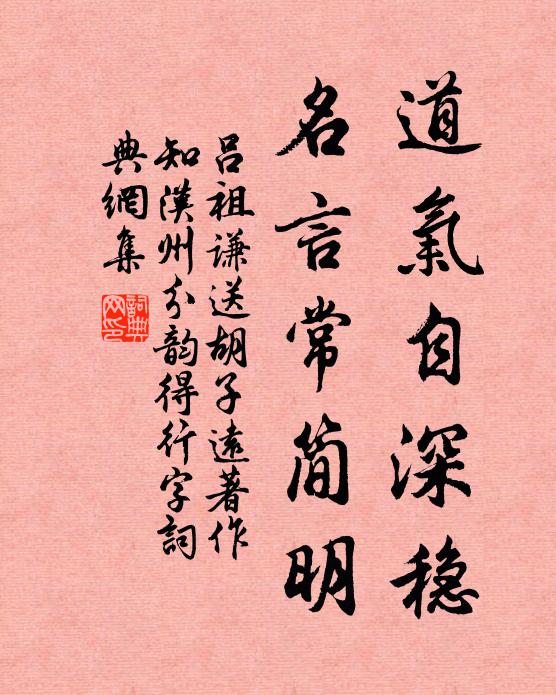 道氣自深穩
名言常簡明
呂祖謙送胡子遠著作
知漢州分韵得行字詞
典網集
詞典網印